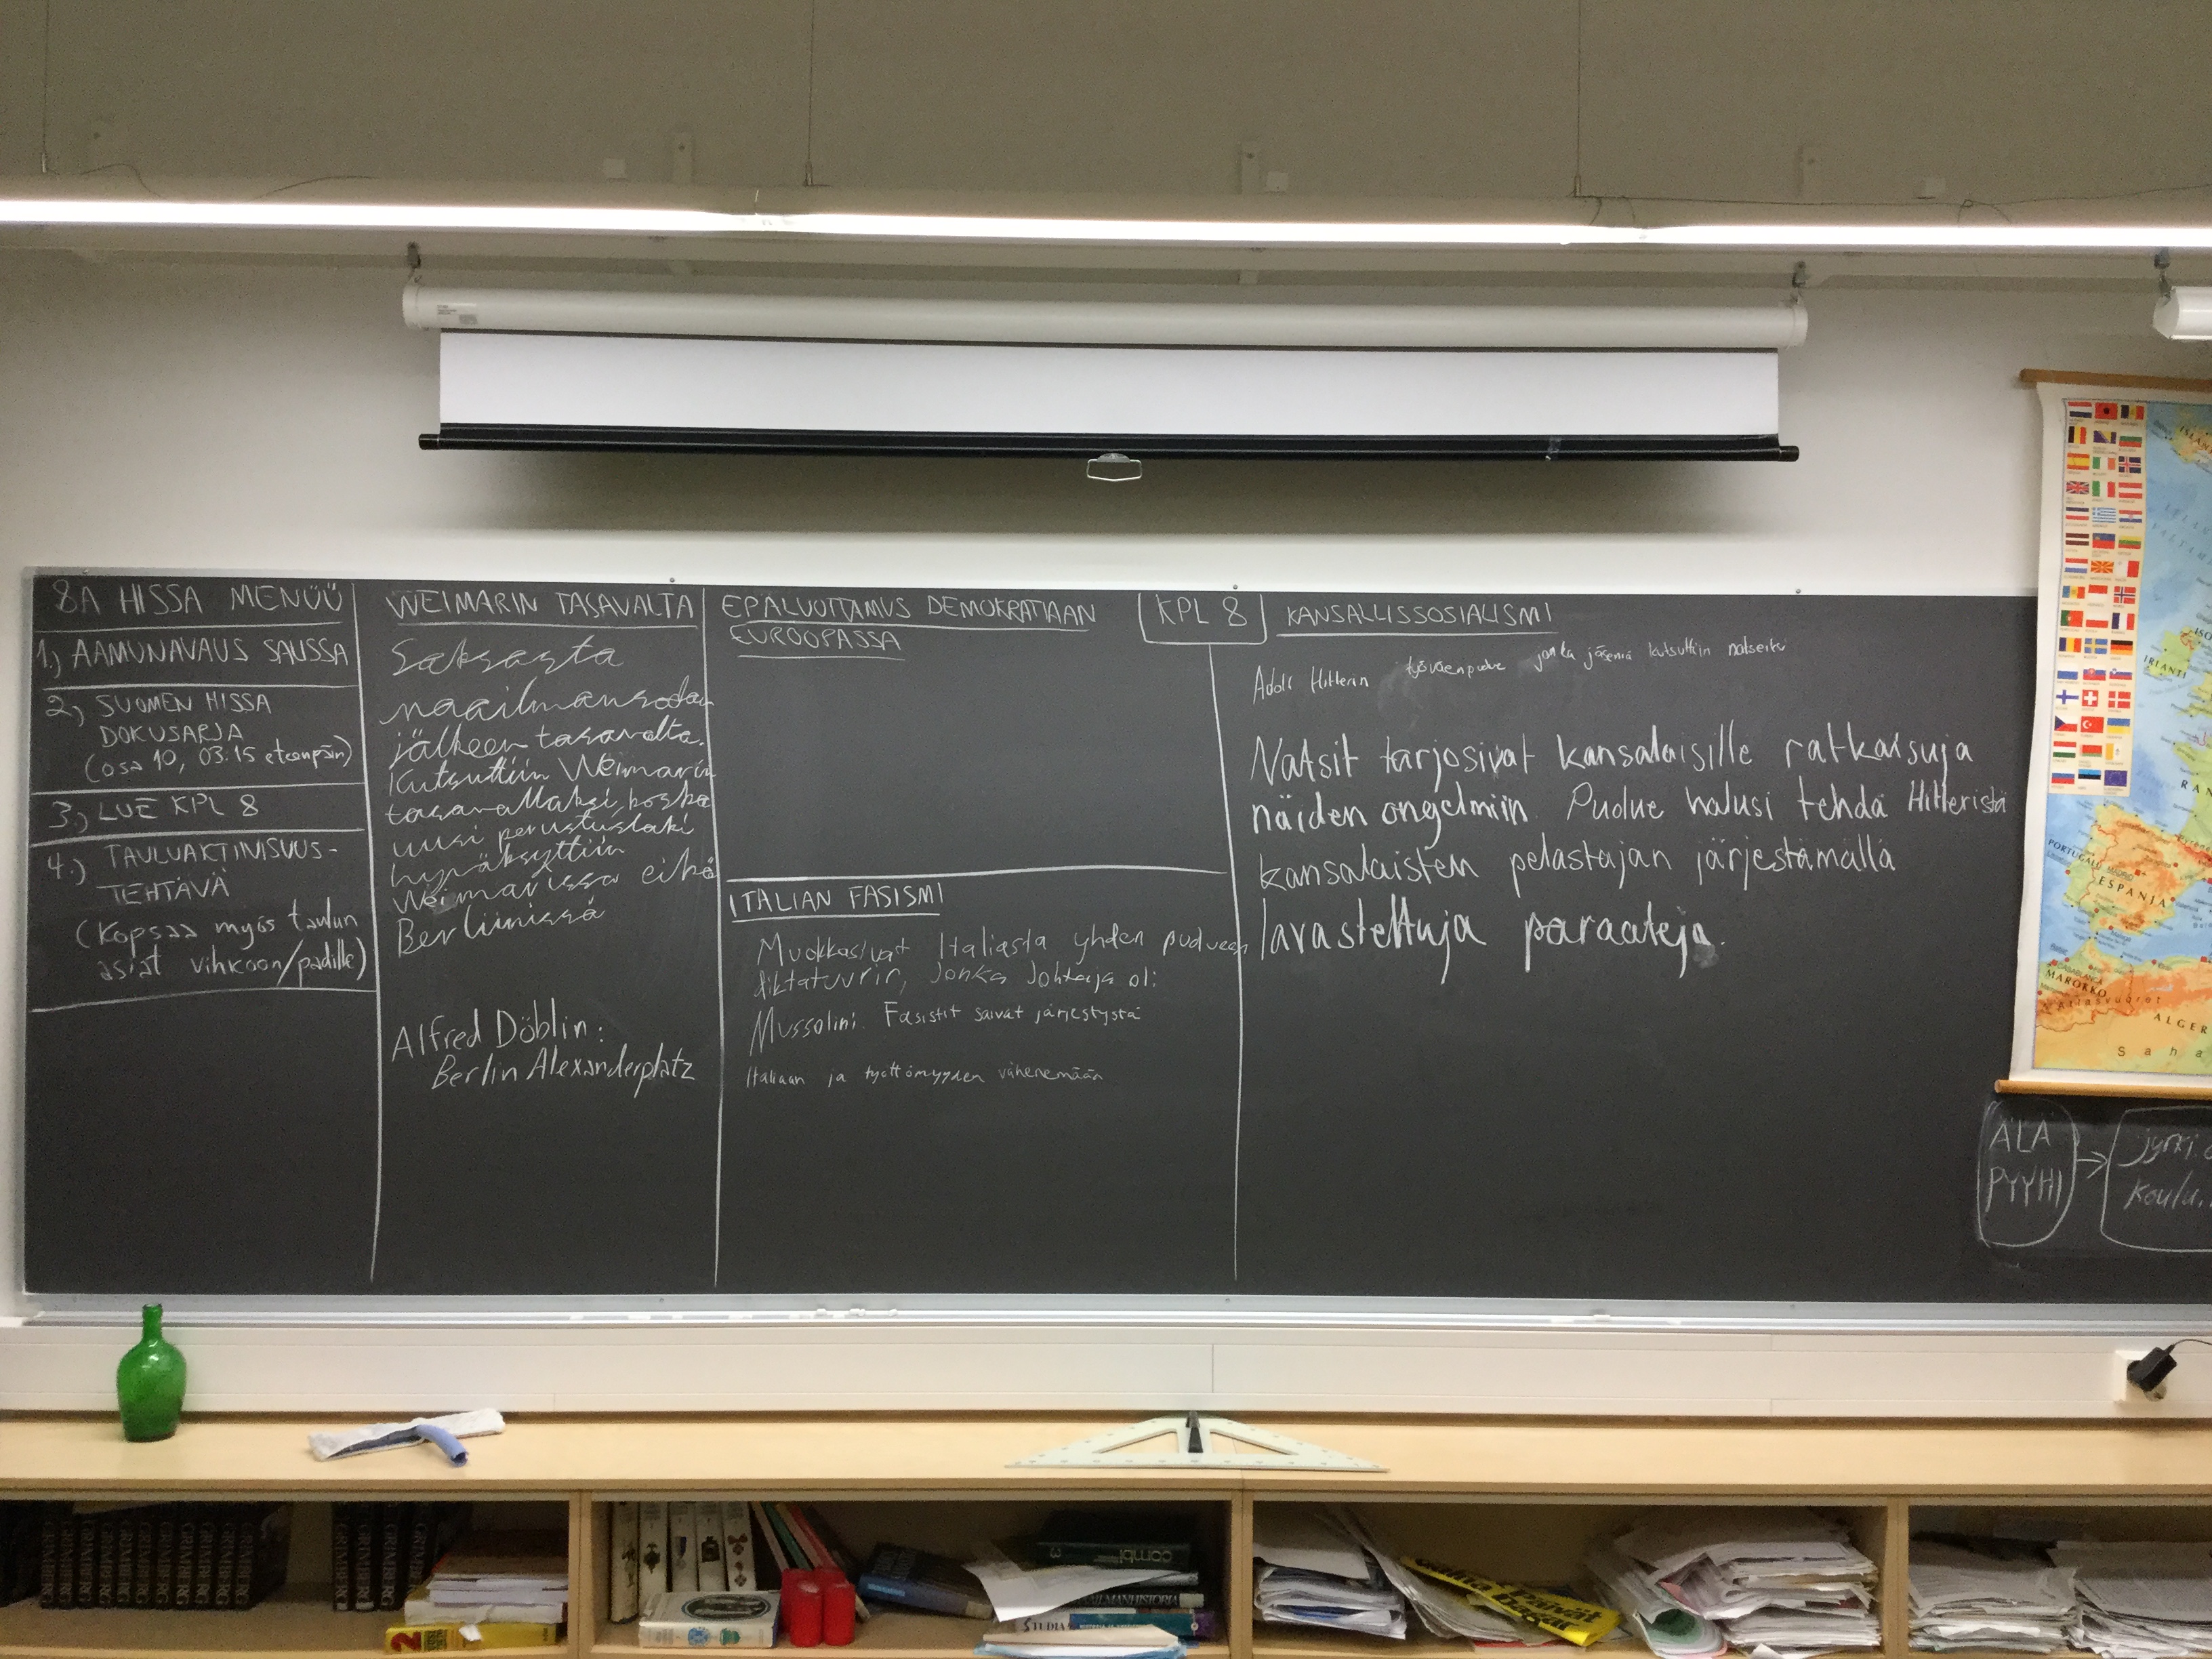 8A HISSA MENÜÜ
1.) AAMUNAVAUS SALISSA
2.) SUOMEN HISSA
DOKUSARJA
(osa 10, 03:15 eteenpäin)
3.) LUE KPL 8
4.) TAULUAKTIIVISUUS-
TEHTÄVÄ
(Kopsaa myös taulun
asiat vihkoon/padille)
WEIMARIN TASAVALTA
Saksasta
maailmansodan
jälkeen tasavalta.
Kutsuttiin Weimarin
tasavallaksi, koska
uusi perustuslaki
hyväksyttiin
Weimarissa eikä
Berliinissä
Alfred Döblin:
Berlin Alexanderplatz
EPÄLUOTTAMUS DEMOKRATIAAN
EUROOPASSA
KPL 8
ITALIAN FASISMI
Muokkasivat Italiasta yhden puolueen
diktatuurin, Jonka Johtaja oli
Mussolini. Fasistit saivat järjestystä
Italiaan ja työttömyyden vähenemään
KANSALLISSOSIALISMI
Adolf Hitlerin työväenpuolue jonka jäseniä kutsuttiin natseiksi
Natsit tarjosivat kansalaisille ratkaisuja
näiden ongelmiin. Puolue halusi tehdä Hitleristä
kansalaisten pelastajan järjestämällä
lavastettuja paraateja.
ÄLÄ
PYYHI
jyrki.
koulu.
ISLA
IRLANTI
PORTUGALI
MADRID
ESPANJA
CASABLANCA
MAROKKO
Atlasvuoret
ALGER
Saha
RAN
GRIMBERG
GRIMBERG
GRIMBERG
GRIMBERG
GRIMBERG
GRIMBERG
GRIMBERG
GRIMBERG
GRIMBERG
GRIMBERG
GRIMBERG
2
combi
3
AILMANHISTORIA
STUDIA